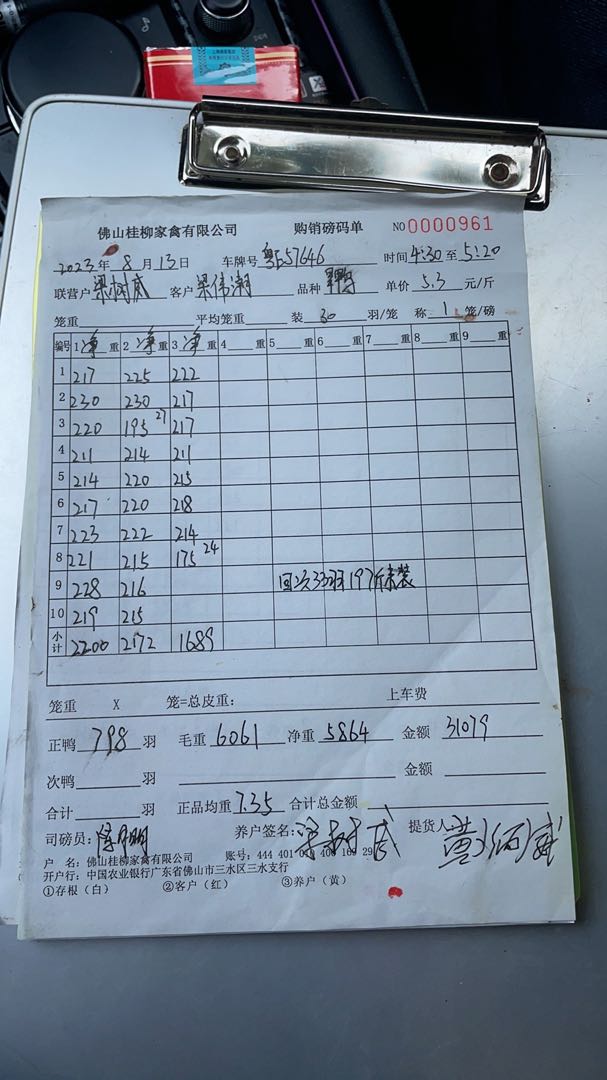 佛山桂柳家禽有限公司 购销磅码单 NO 0000961
2023年 8月 13日 车牌号 粤E57646 时间 4:30 至 5:20
联营户 梁树威 客户 梁伟潮 品种 单价 5.3 元/斤
笼重 平均笼重 装 30 羽/笼 称 1 笼/磅
编号 1 净 重 2 净 重 3 净 重 4 重 5 重 6 重 7 重 8 重 9 重
1 217 225 222
2 230 230 217
3 220 195 27 217
4 211 214 211
5 214 220 215
6 217 220 218
7 223 222 214
8 221 215 175 24
9 228 216 回次33羽197斤未装
10 219 215
小计 2200 2172 1689
笼重 X 笼=总皮重: 上车费
正鸭 798 羽 毛重 6061 净重 5864 金额 31079
次鸭 羽 金额
合计 羽 正品均重 7.35 合计总金额
司磅员: 养户签名: 梁树威 提货人 黄
户 名: 佛山桂柳家禽有限公司 账号: 444 401 29
开户行: 中国农业银行广东省佛山市三水区三水支行
①存根(白) ②客户(红) ③养户(黄)